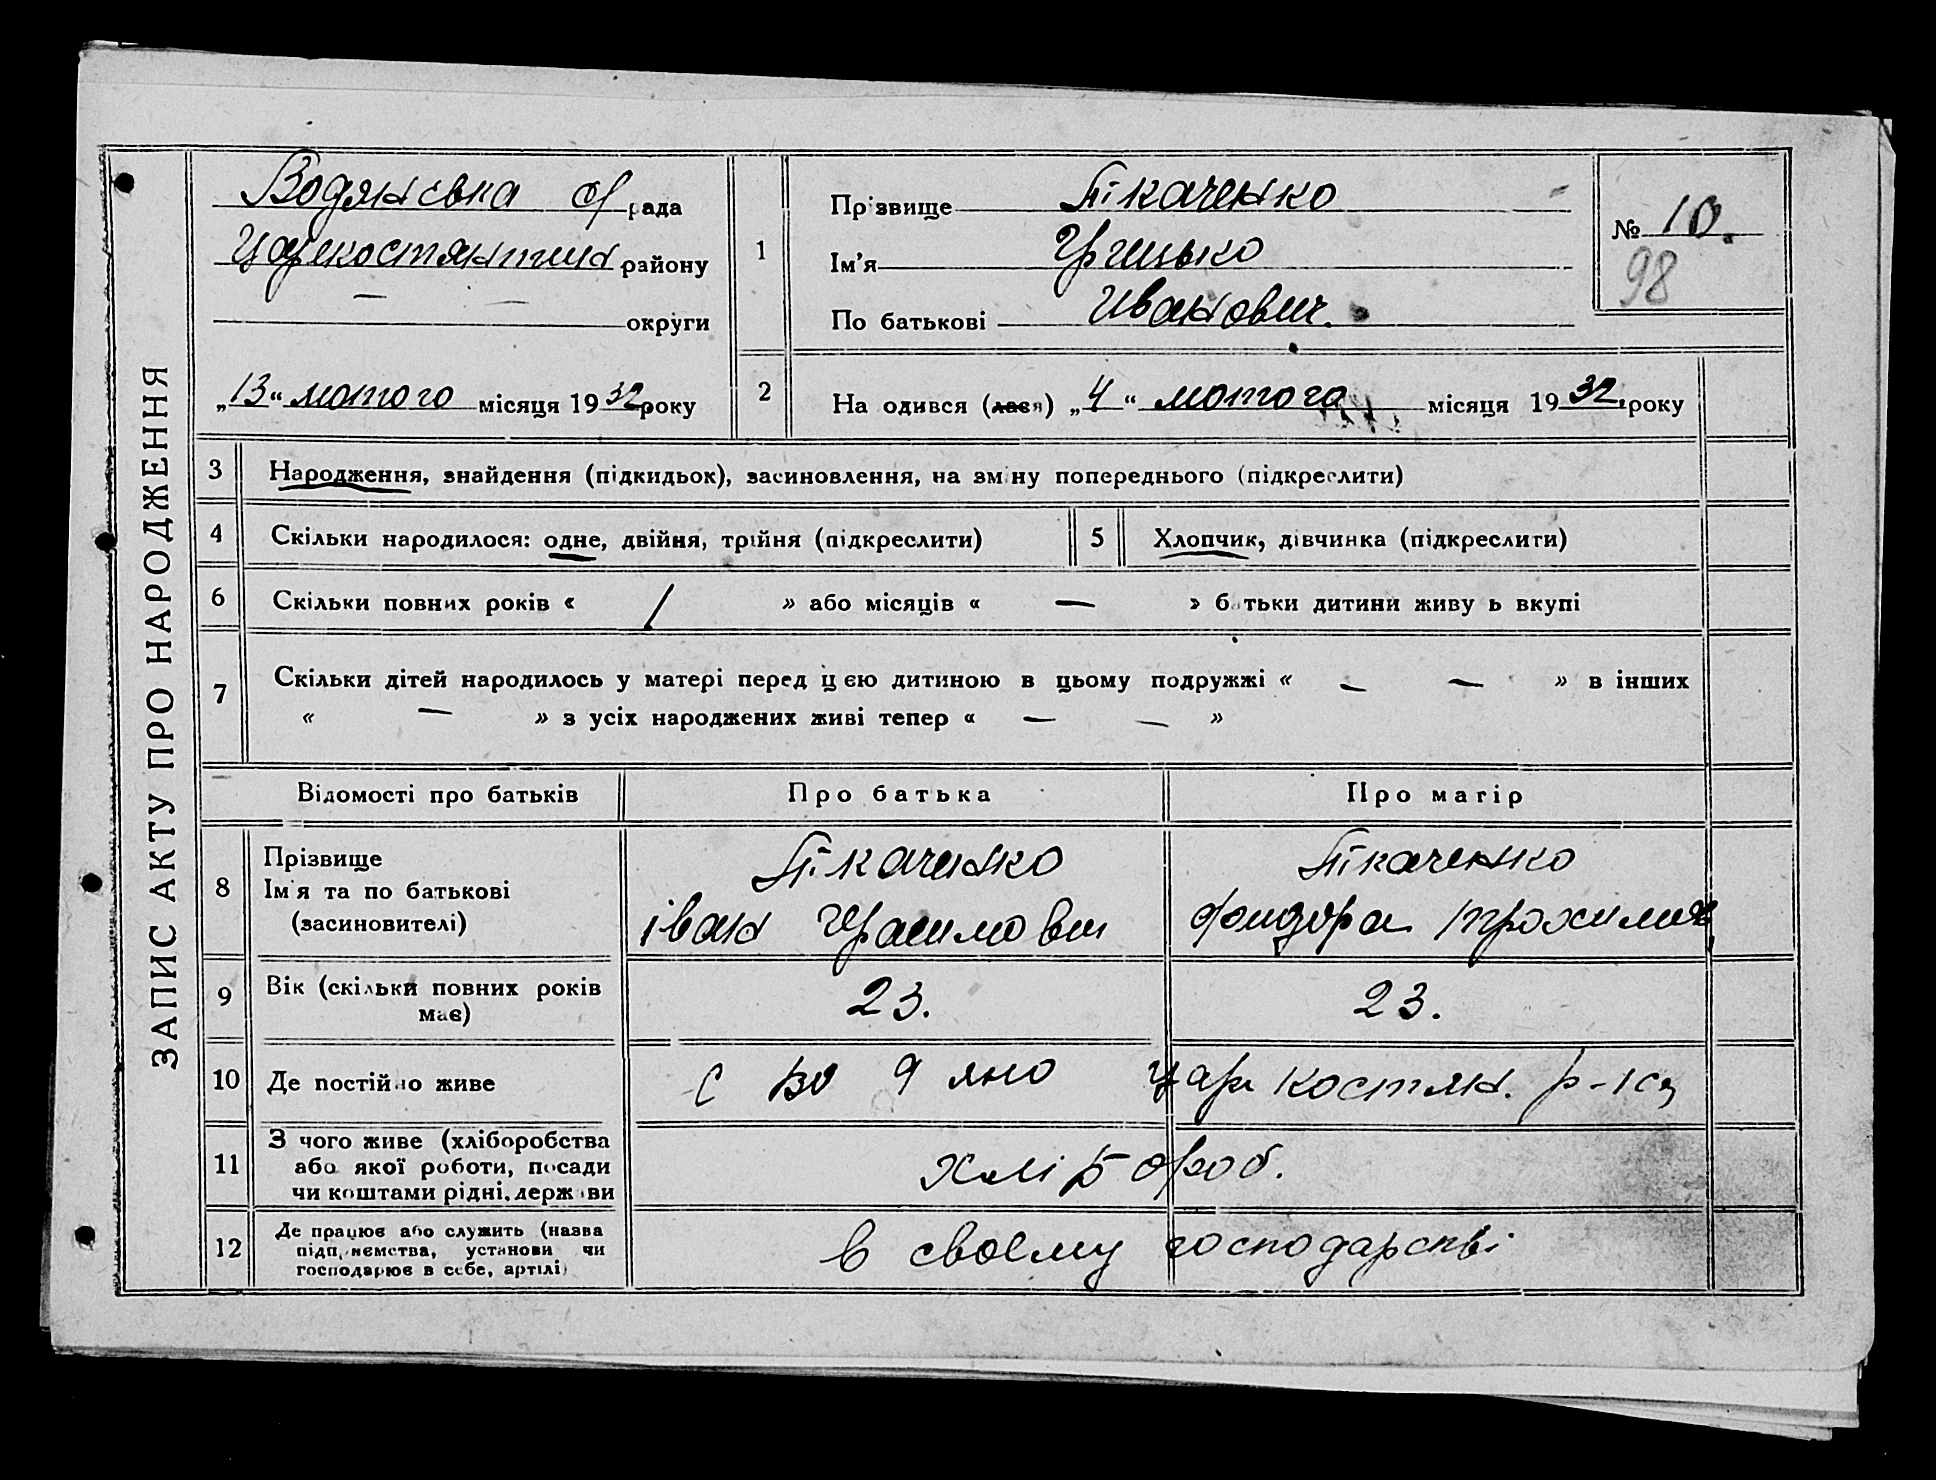 ЗАПИС АКТУ ПРО НАРОДЖЕННЯ
Водянська с/рада
Царекостянтин району
— — округи
„13“ лютого місяця 1932 року
1
Прізвище Ткаченко
Ім'я Грицько
По батькові Иванович.
№ 10.
98
2
Народився (лася) „4“ лютого місяця 1932 року
3 Народження, знайдення (підкидьок), засиновлення, на зміну попереднього (підкреслити)
4 Скільки народилося: одне, двійня, трійня (підкреслити) 5 Хлопчик, дівчинка (підкреслити)
6 Скільки повних років « / » або місяців « — » батьки дитини живуть вкупі
7 Скільки дітей народилось у матері перед цією дитиною в цьому подружжі « — — » в інших
« — » з усіх народжених живі тепер « — — »
Відомості про батьків Про батька Про матір
8 Прізвище
Ім'я та по батькові
(засиновителі)
Ткаченко
Іван Герасимович
Ткаченко
Трохимов
9 Вік (скільки повних років має) 23. 23.
10 Де постійно живе с Водяно Цар Костян. р-ку
11 З чого живе (хліборобства
або якої роботи, посади
чи коштами рідні, держави
хлібороб.
12 Де працює або служить (назва
підприємства, установи чи
господарює в себе, артілі)
в своєму господарстві